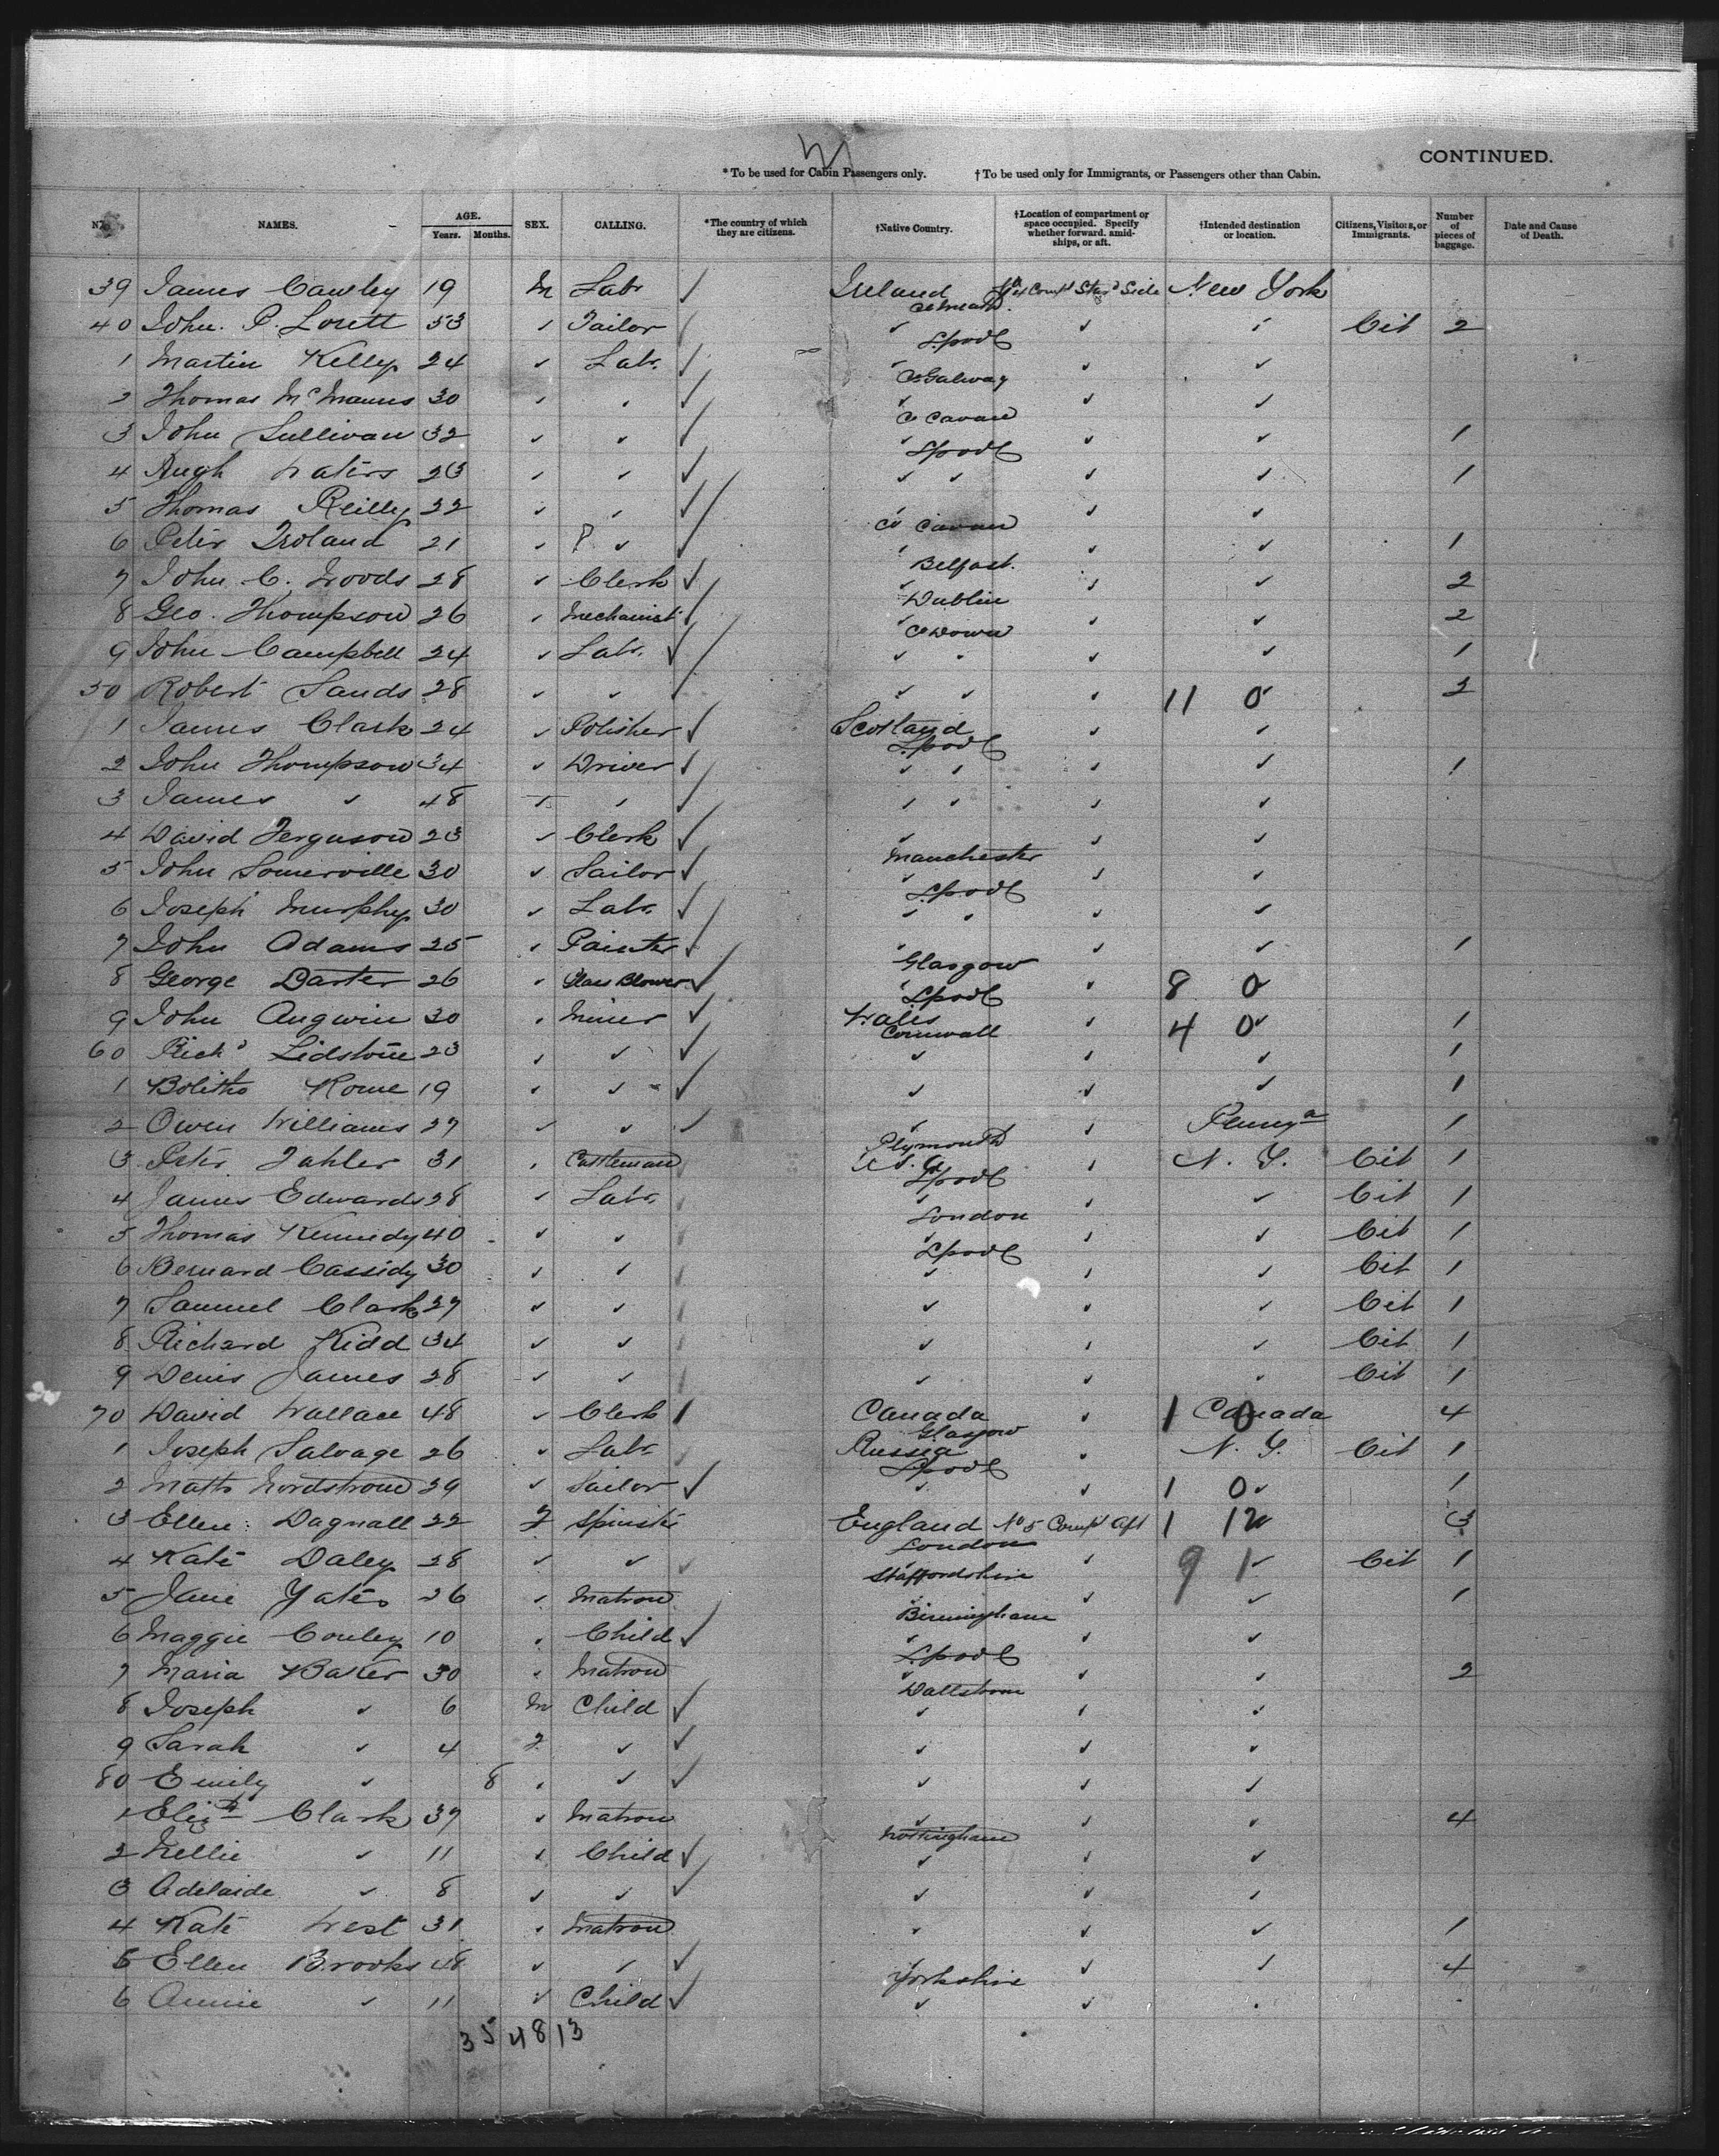 CONTINUED.
*To be used for Cabin Passengers only. †To be used only for Immigrants, or Passengers other than Cabin.
No. NAMES. AGE. Years. Months. SEX. CALLING. *The country of which they are citizens. †Native Country. †Location of compartment or space occupied. Specify whether forward. amidships, or aft. †Intended destination or location. Citizens, Visitors, or Immigrants. Number of pieces of baggage. Date and Cause of Death.
39 James Cawley 19 M Labr ✓ Ireland Compt Starbd Side New York
40 John. P. Lovett 53 ✓ Tailor ✓ ✓ L.pool ✓ ✓ Cit 2
1 Martin Kelly 24 ✓ Labr. ✓ ✓ Co Galway ✓ ✓
2 Thomas McManus 30 ✓ ✓ ✓ ✓ Co Cavan ✓ ✓
3 John Sullivan 32 ✓ ✓ ✓ ✓ L.pool ✓ ✓ 1
4 Hugh Waters 23 ✓ ✓ ✓ ✓ ✓ ✓ ✓ 1
5 Thomas Reilly 22 ✓ ✓ ✓ ✓ Co Cavan ✓ ✓
6 Peter 21 ✓ ✓ ✓ ✓ Belfast. ✓ ✓ 1
7 John C. Woods 28 ✓ Clerk ✓ ✓ Dublin ✓ ✓ 2
8 Geo. Thompson 26 ✓ Mechanist ✓ ✓ Co Down ✓ ✓ 2
9 John Campbell 24 ✓ Labr. ✓ ✓ ✓ ✓ ✓ 1
50 Robert Sands 28 ✓ ✓ ✓ ✓ ✓ 11 0 ✓ 2
1 James Clark 24 ✓ Polisher ✓ Scotland L.pool ✓ ✓
2 John Thompson 34 ✓ Driver ✓ ✓ ✓ ✓ ✓ 1
3 James ✓ 48 ✓ ✓ ✓ ✓ ✓ ✓ ✓
4 David Ferguson 23 ✓ Clerk ✓ ✓ Manchester ✓ ✓
5 John Somerville 30 ✓ Sailor ✓ ✓ L.pool ✓ ✓
6 Joseph Murphy 30 ✓ Labr. ✓ ✓ ✓ ✓ ✓
7 John Adams 25 ✓ Painter ✓ ✓ Glasgow ✓ ✓ 1
8 George Darter 26 ✓ Glass Blower ✓ ✓ L.pool ✓ 8 0
9 John Angwin 30 ✓ Miner ✓ Wales Cornwall ✓ 4 0 ✓ 1
60 Richd Lidstone 23 ✓ ✓ ✓ ✓ ✓ ✓ 1
1 Bolitho Rowe 19 ✓ ✓ ✓ ✓ ✓ ✓ 1
2 Owen Williams 27 ✓ ✓ ✓ ✓ Plymouth ✓ 1
3 Peter Fahler 31 ✓ Cattleman U.S.A. L.pool ✓ N. Y. Cit 1
4 James Edwards 28 ✓ Labr. ✓ London ✓ ✓ Cit 1
5 Thomas Kennedy 40 ✓ ✓ ✓ L.pool ✓ ✓ Cit 1
6 Bernard Cassidy 30 ✓ ✓ ✓ ✓ ✓ Cit 1
7 Samuel Clark 27 ✓ ✓ ✓ ✓ ✓ Cit 1
8 Richard Kidd 34 ✓ ✓ ✓ ✓ ✓ Cit 1
9 Denis James 28 ✓ ✓ ✓ ✓ ✓ Cit 1
70 David Wallace 48 ✓ Clerk Canada Glasgow ✓ 1 0 Canada 4
1 Joseph Salvage 26 ✓ Labr. Russia L.pool ✓ N. Y. Cit 1
2 Matts Nordstrom 29 ✓ Sailor ✓ ✓ ✓ 1 0 ✓ 1
3 Ellen Dagnall 22 F Spinster England London No 5 Compt Aft 1 12 3
4 Kate Daley 28 ✓ ✓ ✓ ✓ Staffordshire ✓ 9 1 ✓ Cit 1
5 Jane Yates 26 ✓ Matron ✓ Birmingham ✓ ✓ 1
6 Maggie Conley 10 ✓ Child ✓ ✓ L.pool ✓ ✓
7 Maria Baker 30 ✓ Matron ✓ ✓ ✓ 2
8 Joseph ✓ 6 M Child ✓ ✓ ✓ ✓
9 Sarah ✓ 4 F ✓ ✓ ✓ ✓ ✓
80 Emily ✓ 8 ✓ ✓ ✓ ✓ ✓ ✓
1 Elizth Clark 37 ✓ Matron ✓ Nottingham ✓ ✓ 4
2 Nellie ✓ 11 ✓ Child ✓ ✓ ✓ ✓
3 Adelaide ✓ 8 ✓ ✓ ✓ ✓ ✓ ✓
4 Kate West 31 ✓ Matron ✓ ✓ ✓ 1
5 Ellen Brooks 48 ✓ ✓ ✓ Yorkshire ✓ ✓ 4
6 Annie ✓ 11 ✓ Child ✓ ✓ ✓
35 48 13